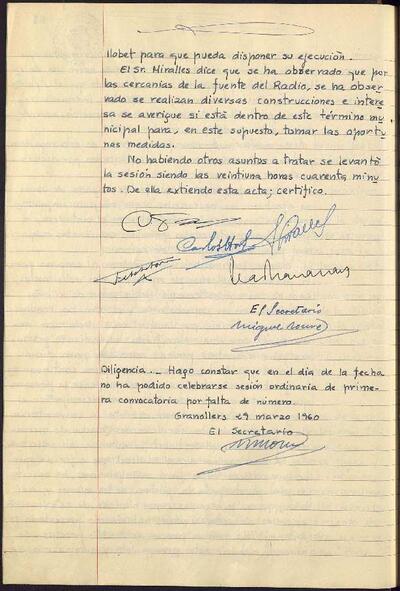 llobet para que pueda disponer su ejecución.
El Sr. Miralles dice que se ha observado que por
las cercanías de la fuente del Radio, se ha obser
vado se realizan diversas construcciones e intere
sa se averigue si está dentro de este término mu
nicipal para, en este supuesto, tomar las oportu
nas medidas.
No habiendo otros asuntos a tratar se levantó
la sesión siendo las veintiuna horas cuarenta minu
tos. De ella extiendo esta acta; certifico.
El Secretario
Diligencia._ Hago constar que en el día de la fecha
no ha podido celebrarse sesión ordinaria de prime
ra convocatoria por falta de número.
Granollers 29 marzo 1960
El Secretario